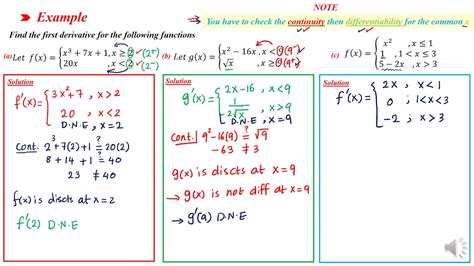 NOTE
Example
You have to check the continuity then differentiability for the common
Find the first derivative for the following functions
(a) Let f(x) = { x³ + 7x + 1, x ≥ 2 (2⁺)
20x , x < 2 (2⁻)
(b) Let g(x) = { x² − 16x, x < 9 (9⁻)
√x , x ≥ 9 (9⁺)
(c) f(x) = { x² , x ≤ 1
1 , 1 < x ≤ 3
5 − 2x , x > 3
Solution
f'(x) = { 3x² + 7 , x > 2
20 , x < 2
D.N.E , x = 2
Cont. 2³ + 7(2) + 1 ≟ 20(2)
8 + 14 + 1 ≟ 40
23 ≠ 40
f(x) is discts at x = 2
f'(2) D.N.E
Solution
g'(x) = { 2x − 16 , x < 9
1/(2√x) , x > 9
D.N.E , x = 9
Cont. 9² − 16(9) ≟ √9
−63 ≠ 3
g(x) is discts at x = 9
→ g(x) is not diff at x = 9
→ g'(9) D.N.E
Solution
f'(x) = { 2x , x < 1
0 ; 1 < x < 3
−2 ; x > 3